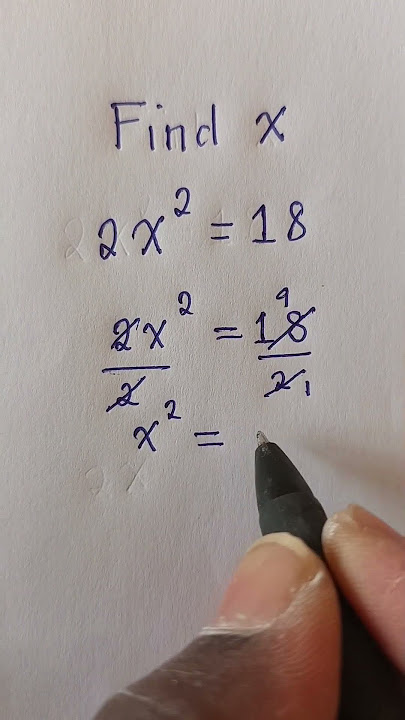 Find x
2x² = 18
2x²/2 = 18/2 9 1
x² =